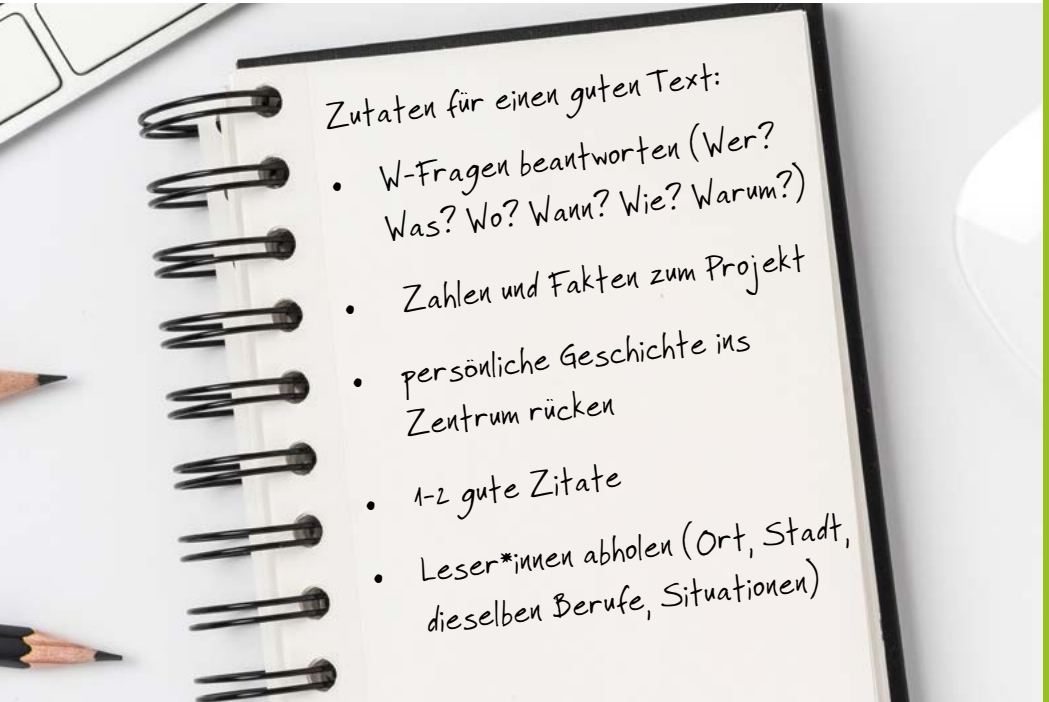 Zutaten für einen guten Text:
• W-Fragen beantworten (Wer?
Was? Wo? Wann? Wie? Warum?)
• Zahlen und Fakten zum Projekt
• persönliche Geschichte ins
Zentrum rücken
• 1-2 gute Zitate
• Leser*innen abholen (Ort, Stadt,
dieselben Berufe, Situationen)